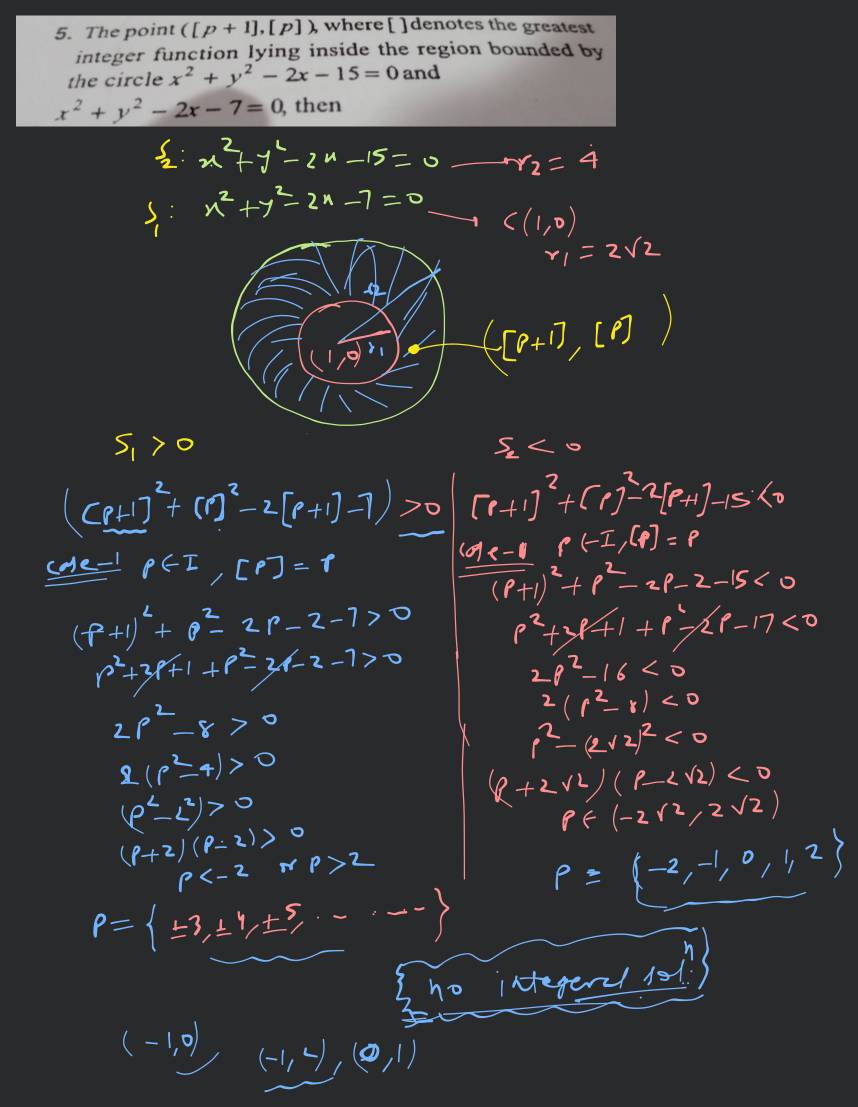 5. The point ([p + 1], [p]), where [ ] denotes the greatest
integer function lying inside the region bounded by
the circle x² + y² − 2x − 15 = 0 and
x² + y² − 2x − 7 = 0, then
S₂: x² + y² − 2x − 15 = 0 → r₂ = 4
S₁: x² + y² − 2x − 7 = 0 → C(1,0)
r₁ = 2√2
r₂
([P+1], [P])
(1,0) r₁
S₁ > 0
([P+1]² + [P]² − 2[P+1] − 7) > 0
case-1 P∈I, [P] = P
(P+1)² + P² − 2P − 2 − 7 > 0
P² + 2P + 1 + P² − 2P − 2 − 7 > 0
2P² − 8 > 0
2(P² − 4) > 0
(P² − 2²) > 0
(P+2)(P−2) > 0
P < −2 or P > 2
P = { ±3, ±4, ±5, ... ... }
S₂ < 0
[P+1]² + [P]² − 2[P+1] − 15 < 0
case-1 P∈I, [P] = P
(P+1)² + P² − 2P − 2 − 15 < 0
P² + 2P + 1 + P² − 2P − 17 < 0
2P² − 16 < 0
2(P² − 8) < 0
P² − (2√2)² < 0
(P + 2√2)(P − 2√2) < 0
P∈(−2√2, 2√2)
P = {−2, −1, 0, 1, 2}
{ no integeral solⁿ }
(−1,0) (−1,2), (0,1)